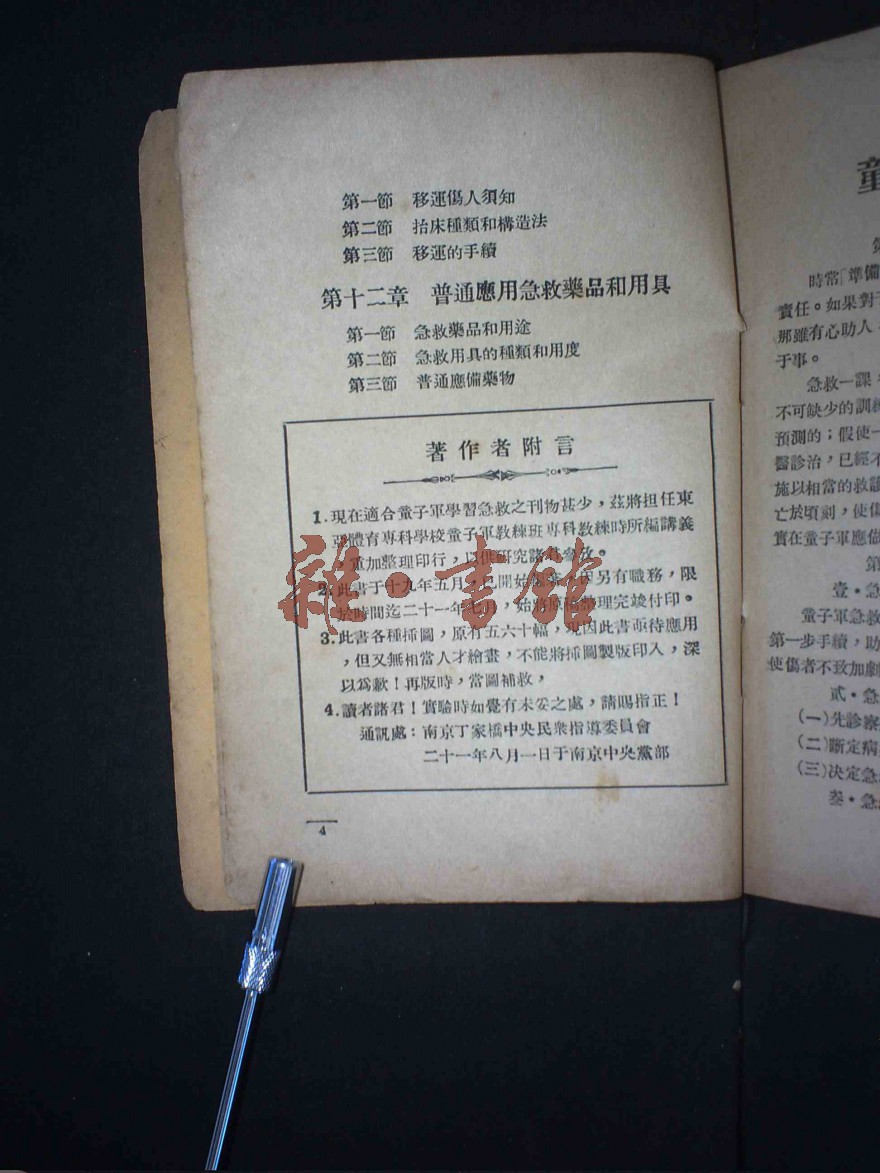 第一節　移運傷人須知
第二節　抬床種類和構造法
第三節　移運的手續
第十二章　普通應用急救藥品和用具
第一節　急救藥品和用途
第二節　急救用具的種類和用度
第三節　普通應備藥物
著作者附言
1.現在適合童子軍學習急救之刊物甚少，茲將担任東
亞體育專科學校童子軍教練班專科教練時所編講義
，重加整理印行，以供研究諸君參攷。
2.此書于十九年五月，已開始，因另有職務，限
於時間迄二十一年七月，始將原稿整理完竣付印。
3.此書各種揷圖，原有五六十幅，現因此書亟待應用
，但又無相當人才繪畫，不能將揷圖製版印入，深
以爲歉！再版時，當圖補救，
4.讀者諸君！實驗時如覺有未妥之處，請賜指正！
通訊處：南京丁家橋中央民衆指導委員會
二十一年八月一日于南京中央黨部
4
雜·書館
童
第
時常「準備
責任。如果對于
那雖有心助人，
于事。
急救一課，
不可缺少的訓練
預測的；假使一
醫診治，已經不
施以相當的救護
亡於頃刻，使傷
實在童子軍應做
第
壹·急
童子軍急救
第一步手續，助
使傷者不致加劇
貳·急
(一)先診察
(二)斷定病
(三)决定急
叁·急